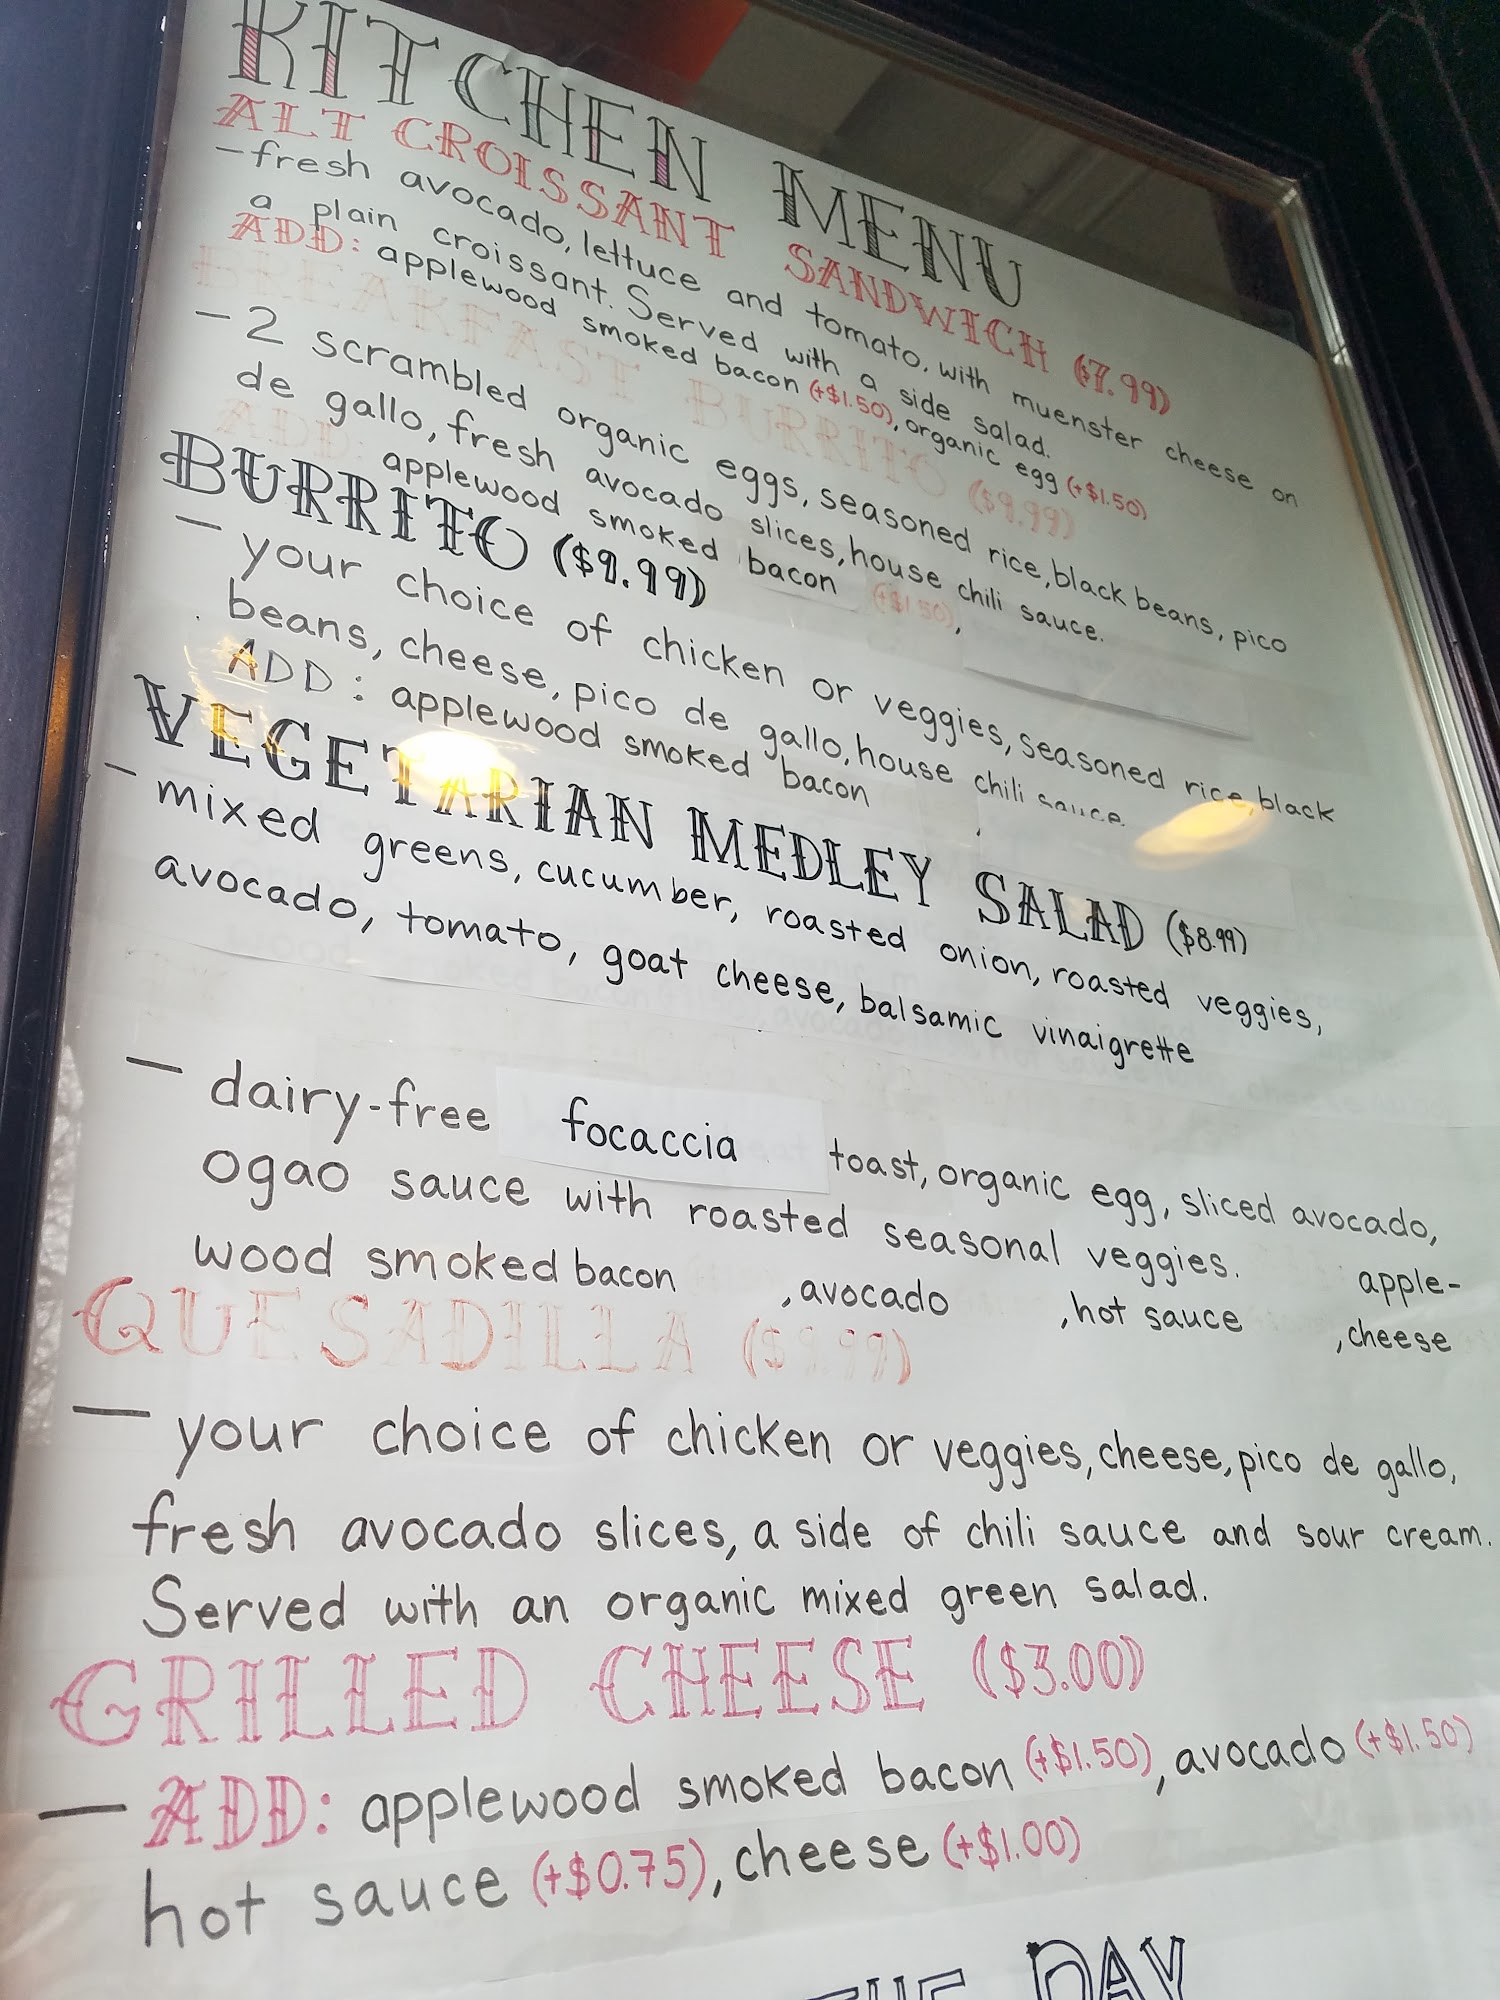 KITCHEN MENU
ALT CROISSANT SANDWICH ($7.99)
- fresh avocado, lettuce and tomato, with muenster cheese on
a plain croissant. Served with a side salad.
ADD: applewood smoked bacon (+$1.50), organic egg (+$1.50)
BREAKFAST BURRITO ($9.99)
- 2 scrambled organic eggs, seasoned rice, black beans, pico
de gallo, fresh avocado slices, house chili sauce.
ADD: applewood smoked bacon (+$1.50),
BURRITO ($9.99)
- your choice of chicken or veggies, seasoned rice, black
beans, cheese, pico de gallo, house chili sauce.
ADD: applewood smoked bacon ,
VEGETARIAN MEDLEY SALAD ($8.99)
- mixed greens, cucumber, roasted onion, roasted veggies,
avocado, tomato, goat cheese, balsamic vinaigrette
- dairy-free focaccia toast, organic egg, sliced avocado,
ogao sauce with roasted seasonal veggies. apple-
wood smoked bacon , avocado , hot sauce , cheese
QUESADILLA ($9.99)
- your choice of chicken or veggies, cheese, pico de gallo,
fresh avocado slices, a side of chili sauce and sour cream.
Served with an organic mixed green salad.
GRILLED CHEESE ($3.00)
- ADD: applewood smoked bacon (+$1.50), avocado (+$1.50)
hot sauce (+$0.75), cheese (+$1.00)
THE DAY